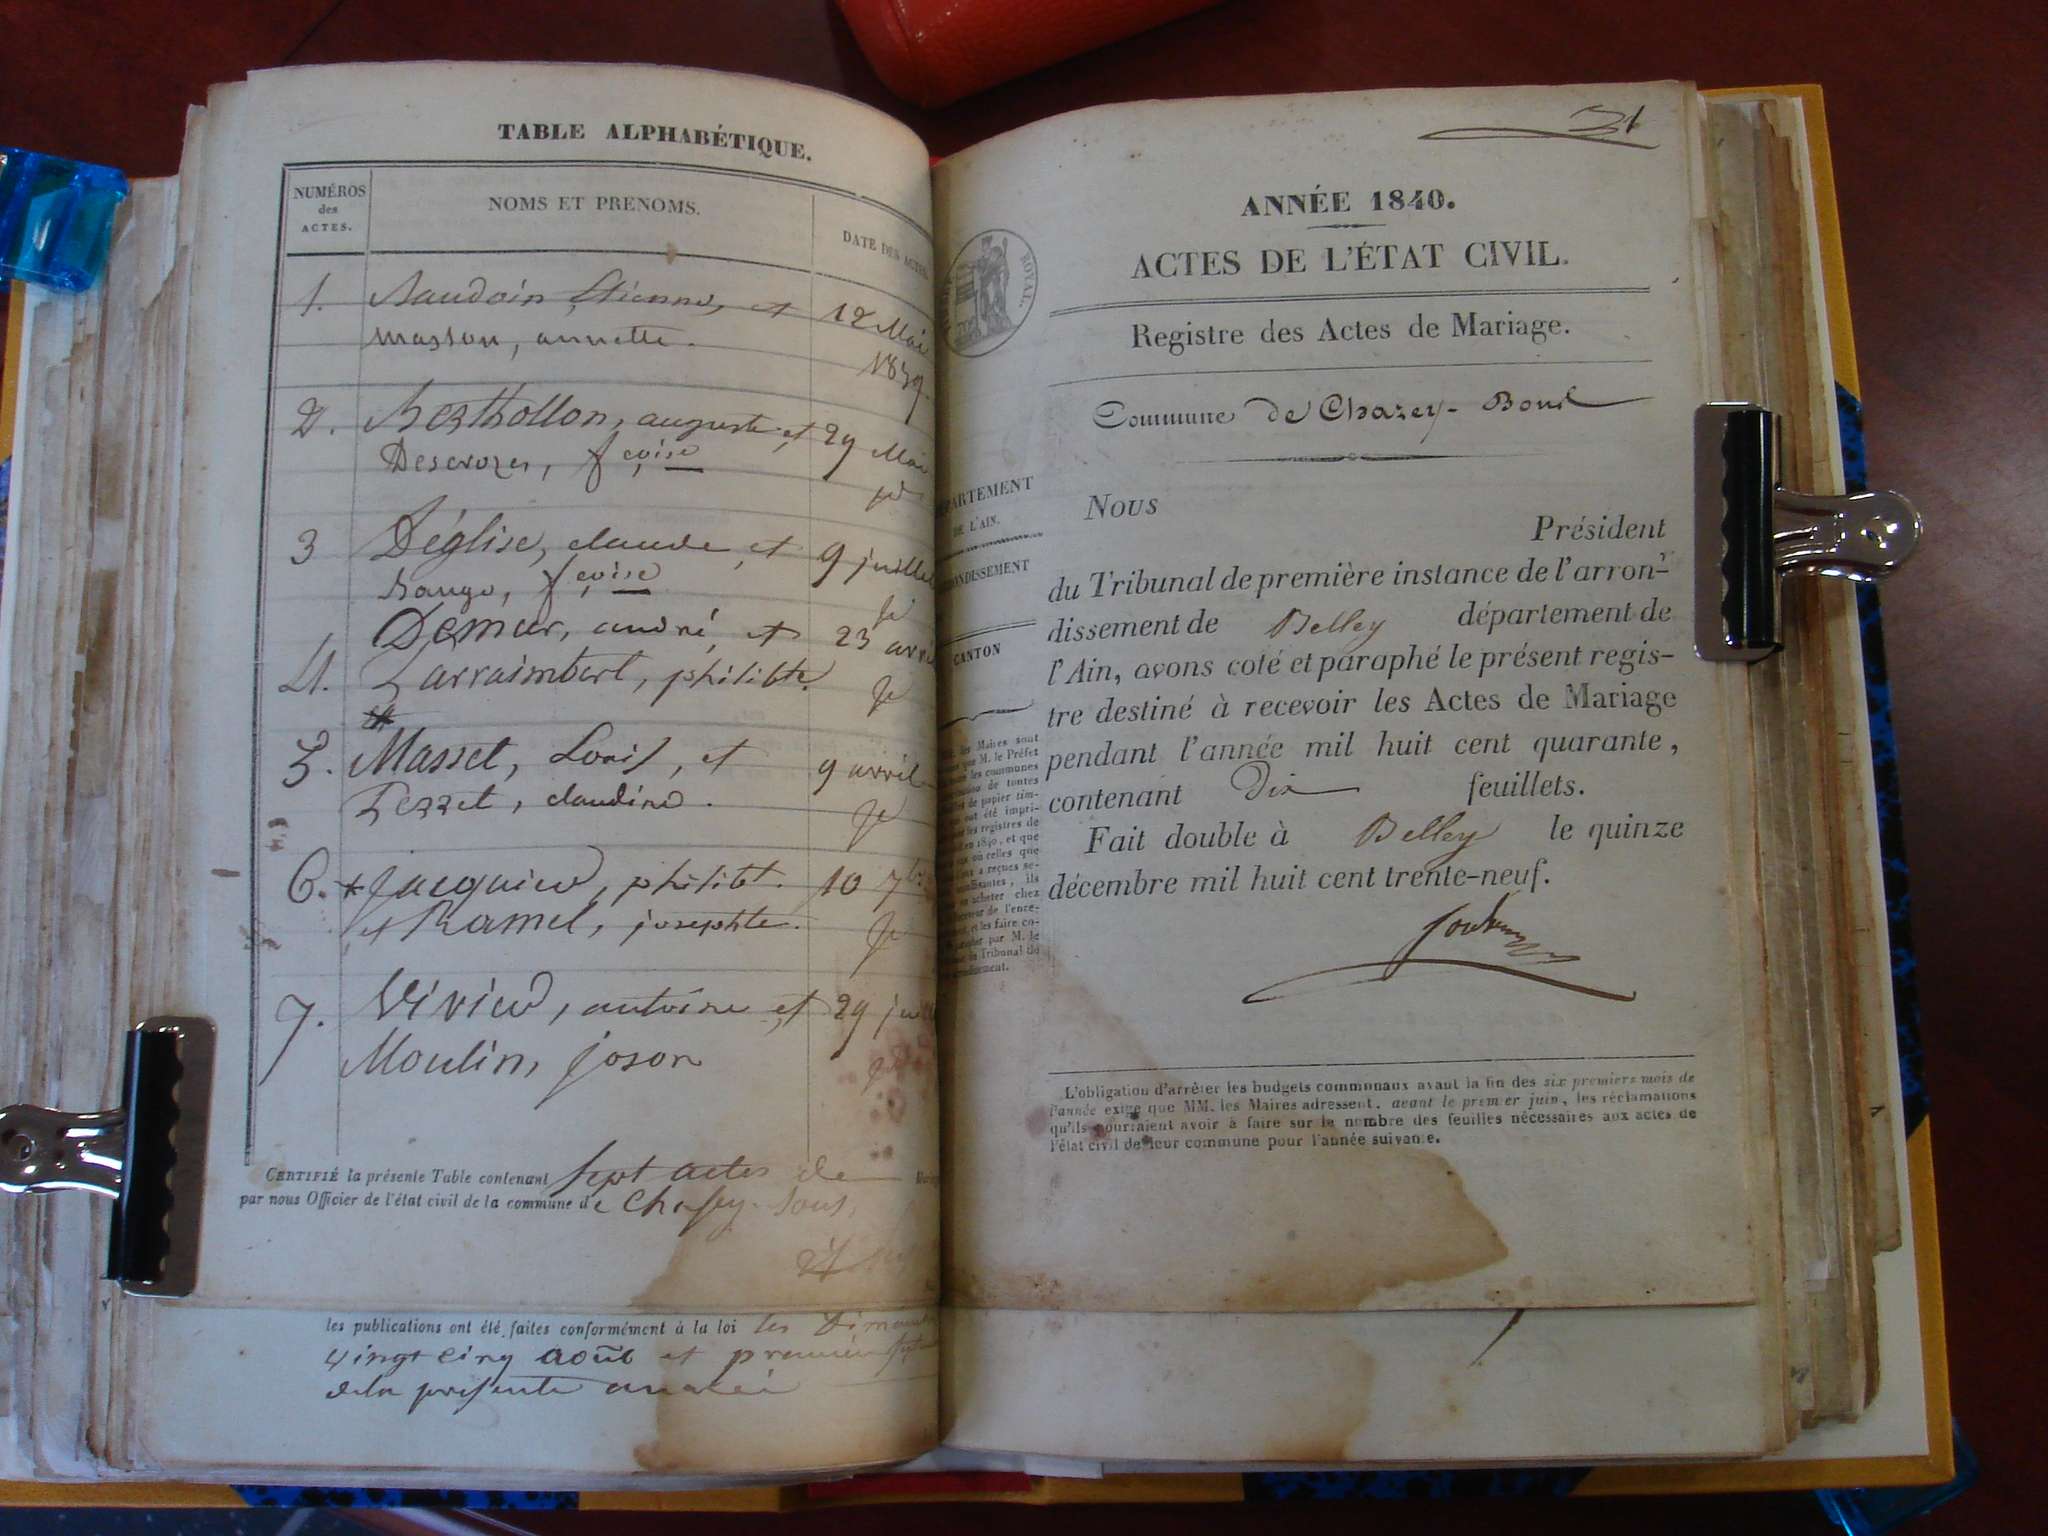 TABLE ALPHABÉTIQUE.
NUMÉROS
des
ACTES.
NOMS ET PRENOMS.
DATE DES ACTES.
1. Baudoin, Étienne, et 12 Mai
masson, annette. 1839
2. Berthollon, auguste, et 29 Mai
Descrozes, fçoise jd
3 Déglise, claude, et 9 juillet
fçoise jd
Demur, andré, et 23 avril
4. Larraimbert, philibte. jd
5. Masset, Louis, et 9 avril
Pezzet, claudine. jd
6. * Jacquieu, philibt. 10 7bre
et Ramel, josephte. jd
7. Vivieu, antoine et 29
Moulin, joson jd
CERTIFIÉ la présente Table contenant sept actes de
par nous Officier de l'état civil de la commune de Chasey-
les publications ont été faites conformément à la loi les
vingt cinq août et premier
de la presente année
31
ANNÉE 1840.
ACTES DE L'ÉTAT CIVIL.
ROYAL.
Registre des Actes de Mariage.
Commune de Chazey-Bons
DÉPARTEMENT
DE L'AIN.
ARRONDISSEMENT
CANTON
Nous
Président
du Tribunal de première instance de l'arron-
dissement de Belley département de
l'Ain, avons coté et paraphé le présent regis-
tre destiné à recevoir les Actes de Mariage
pendant l'année mil huit cent quarante,
contenant Dix feuillets.
Fait double à Belley le quinze
décembre mil huit cent trente-neuf.
les Maires sont
que M. le Préfet
les communes
de toutes
de papier tim-
ont été impri-
les registres de
en 1840, et que
ou celles que
reçues se-
, ils
acheter chez
de l'enre-
et les faire co-
par M. le
Tribunal de
L'obligation d'arrêter les budgets communaux avant la fin des six premiers mois de
l'année exige que MM. les Maires adressent, avant le premier juin, les réclamations
qu'ils pourraient avoir à faire sur le nombre des feuilles nécessaires aux actes de
l'état civil de leur commune pour l'année suivante.